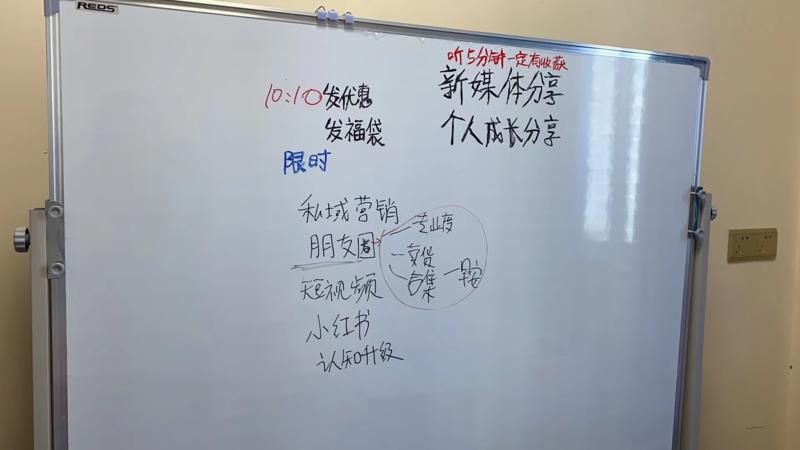 REDS
听5分钟一定有收获
新媒体分享
个人成长分享
10:10发优惠
发福袋
限时
私域营销
朋友圈
专业度
卖货
合集 一早安
短视频
小红书
认知升级